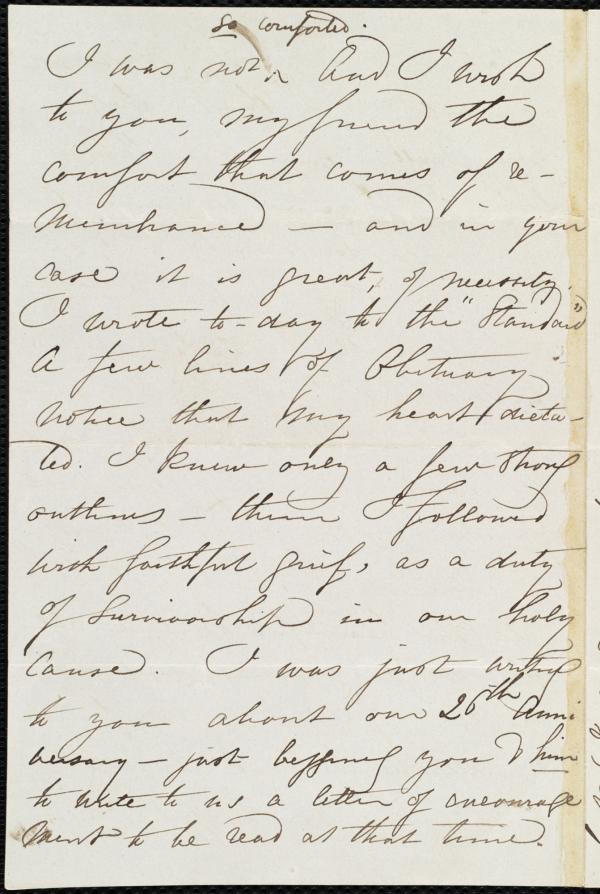 so comforted.
I was not ^ And I wish
to you, my friend the
comfort that comes of re-
membrance — and in your
case it is great, of necessity.
I wrote to-day to the "Standard"
a few lines of Obituary
notice that my heart dicta-
ted. I knew only a few strong
outlines — them I followed
with faithful grief, as a duty
of Survivorship in our holy
cause. I was just writing
to you about our 26th Anni
versary — just begging you & him
to write to us a letter of encourage
ment to be read at that time.